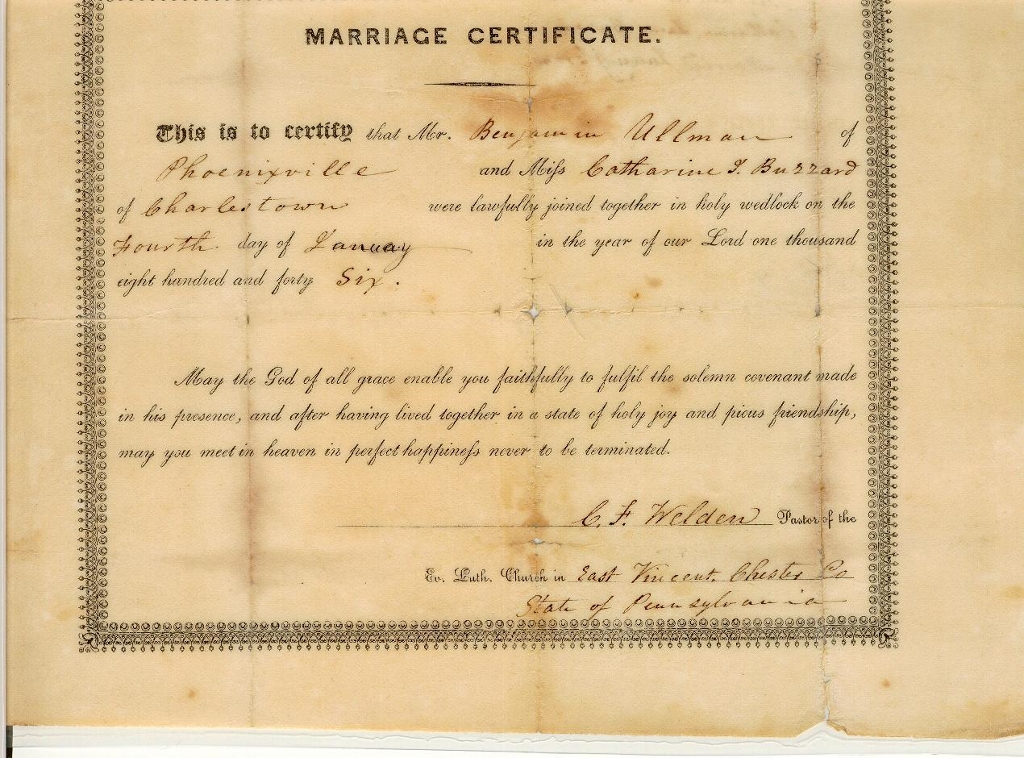 MARRIAGE CERTIFICATE.
This is to certify that Mr. Benjamin Ullman of
Phoenixville and Miſs Catharine I. Buzzard
of Charlestown were lawfully joined together in holy wedlock on the
Fourth day of January in the year of our Lord one thousand
eight hundred and forty Six.
May the God of all grace enable you faithfully to fulfil the solemn covenant made
in his presence, and after having lived together in a state of holy joy and pious friendship,
may you meet in heaven in perfect happineſs never to be terminated.
C. F. Welden Pastor of the
Ev. Luth. Church in East Vincent. Chester Co
State of Pennsylvania